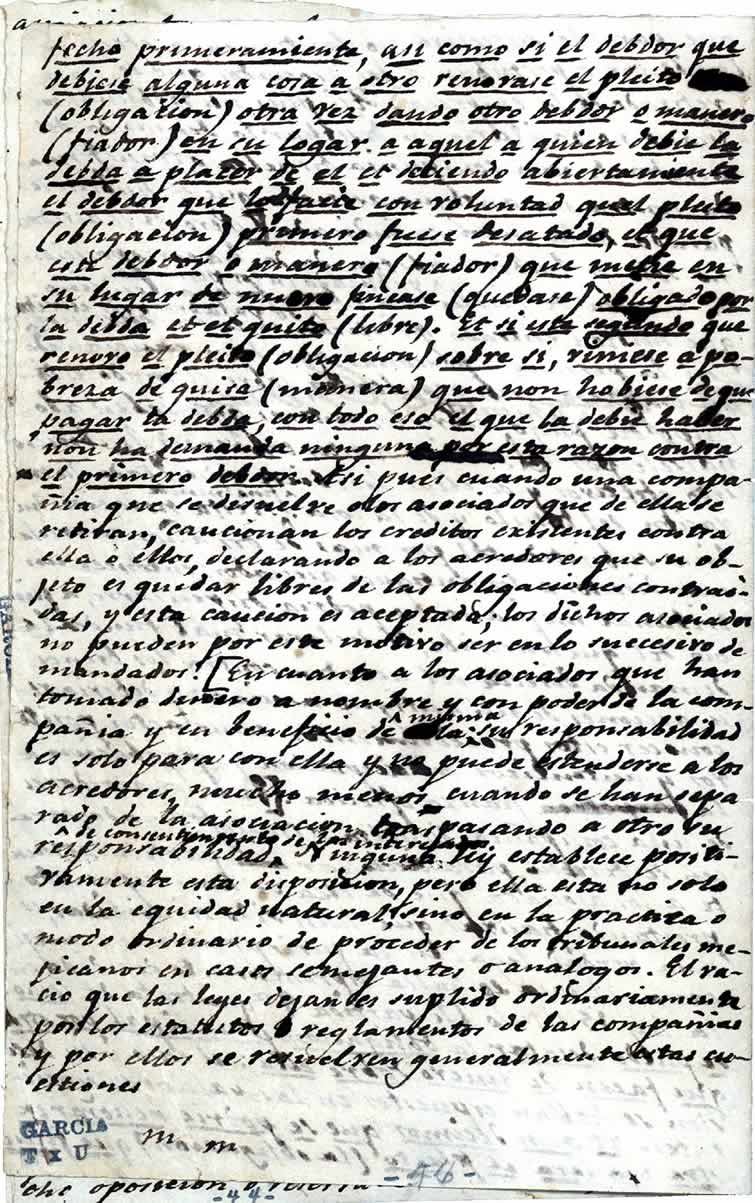 fecho primeramiente, asi como si el debdor que
debiese alguna cosa a otro renovase el pleito
(obligacion) otra vez dando otro debdor o manero
(fiador) en su logar a aquel a quien debie la
debda a placer de el et deciendo abiertamente
el debdor que lo facie con voluntad quel pleito
(obligacion) primero fuese desatado, et que
este debdor o manero (fiador) que metie en
su lugar de nuevo fincase (quedase) obligado por
la debda et et quito (libre). Et si este segundo que
renovo el pleito (obligacion) sobre si, viniese a po-
breza de guisa (manera) que non hobiese de que
pagar la debda, con todo eso el que la debie haber
non ha demanda ninguna por esta razon contra
el primero debdor. Asi pues cuando una compa-
ñia que se disuelve o los asociados que de ella se
retiran, caucionan los creditos existentes contra
ella o ellos, declarando a los acredores que su ob-
jeto es quedar libres de las obligaciones contrai-
das, y esta caucion es aceptada; los dichos asociados
no pueden por este motivo ser en lo succesivo de
mandados. [En cuanto a los asociados que han
tomado dinero a nombre y con poder de la com-
pañia y en beneficio de la ^ misma ^ su responsabilidad
es solo para con ella y no puede estenderse a los
acredores, mucho menos cuando se han sepa
rado de la asociacion traspasando a otro su
^ de consentimiento de los interesados
responsabilidad. Ninguna ley establece positi-
vamente esta disposicion, pero ella esta no solo
en la equidad natural, sino en la practica o
modo ordinario de proceder de los tribunales me-
jicanos en casos semejantes o analogos. El va-
cio que las leyes dejan es suplido ordinariamente
por los estatutos o reglamentos de las compañias
y por ellos se resuelven generalmente estas cu-
estiones
GARCIA
TXU
m m
-46-
che oposicion
-44-